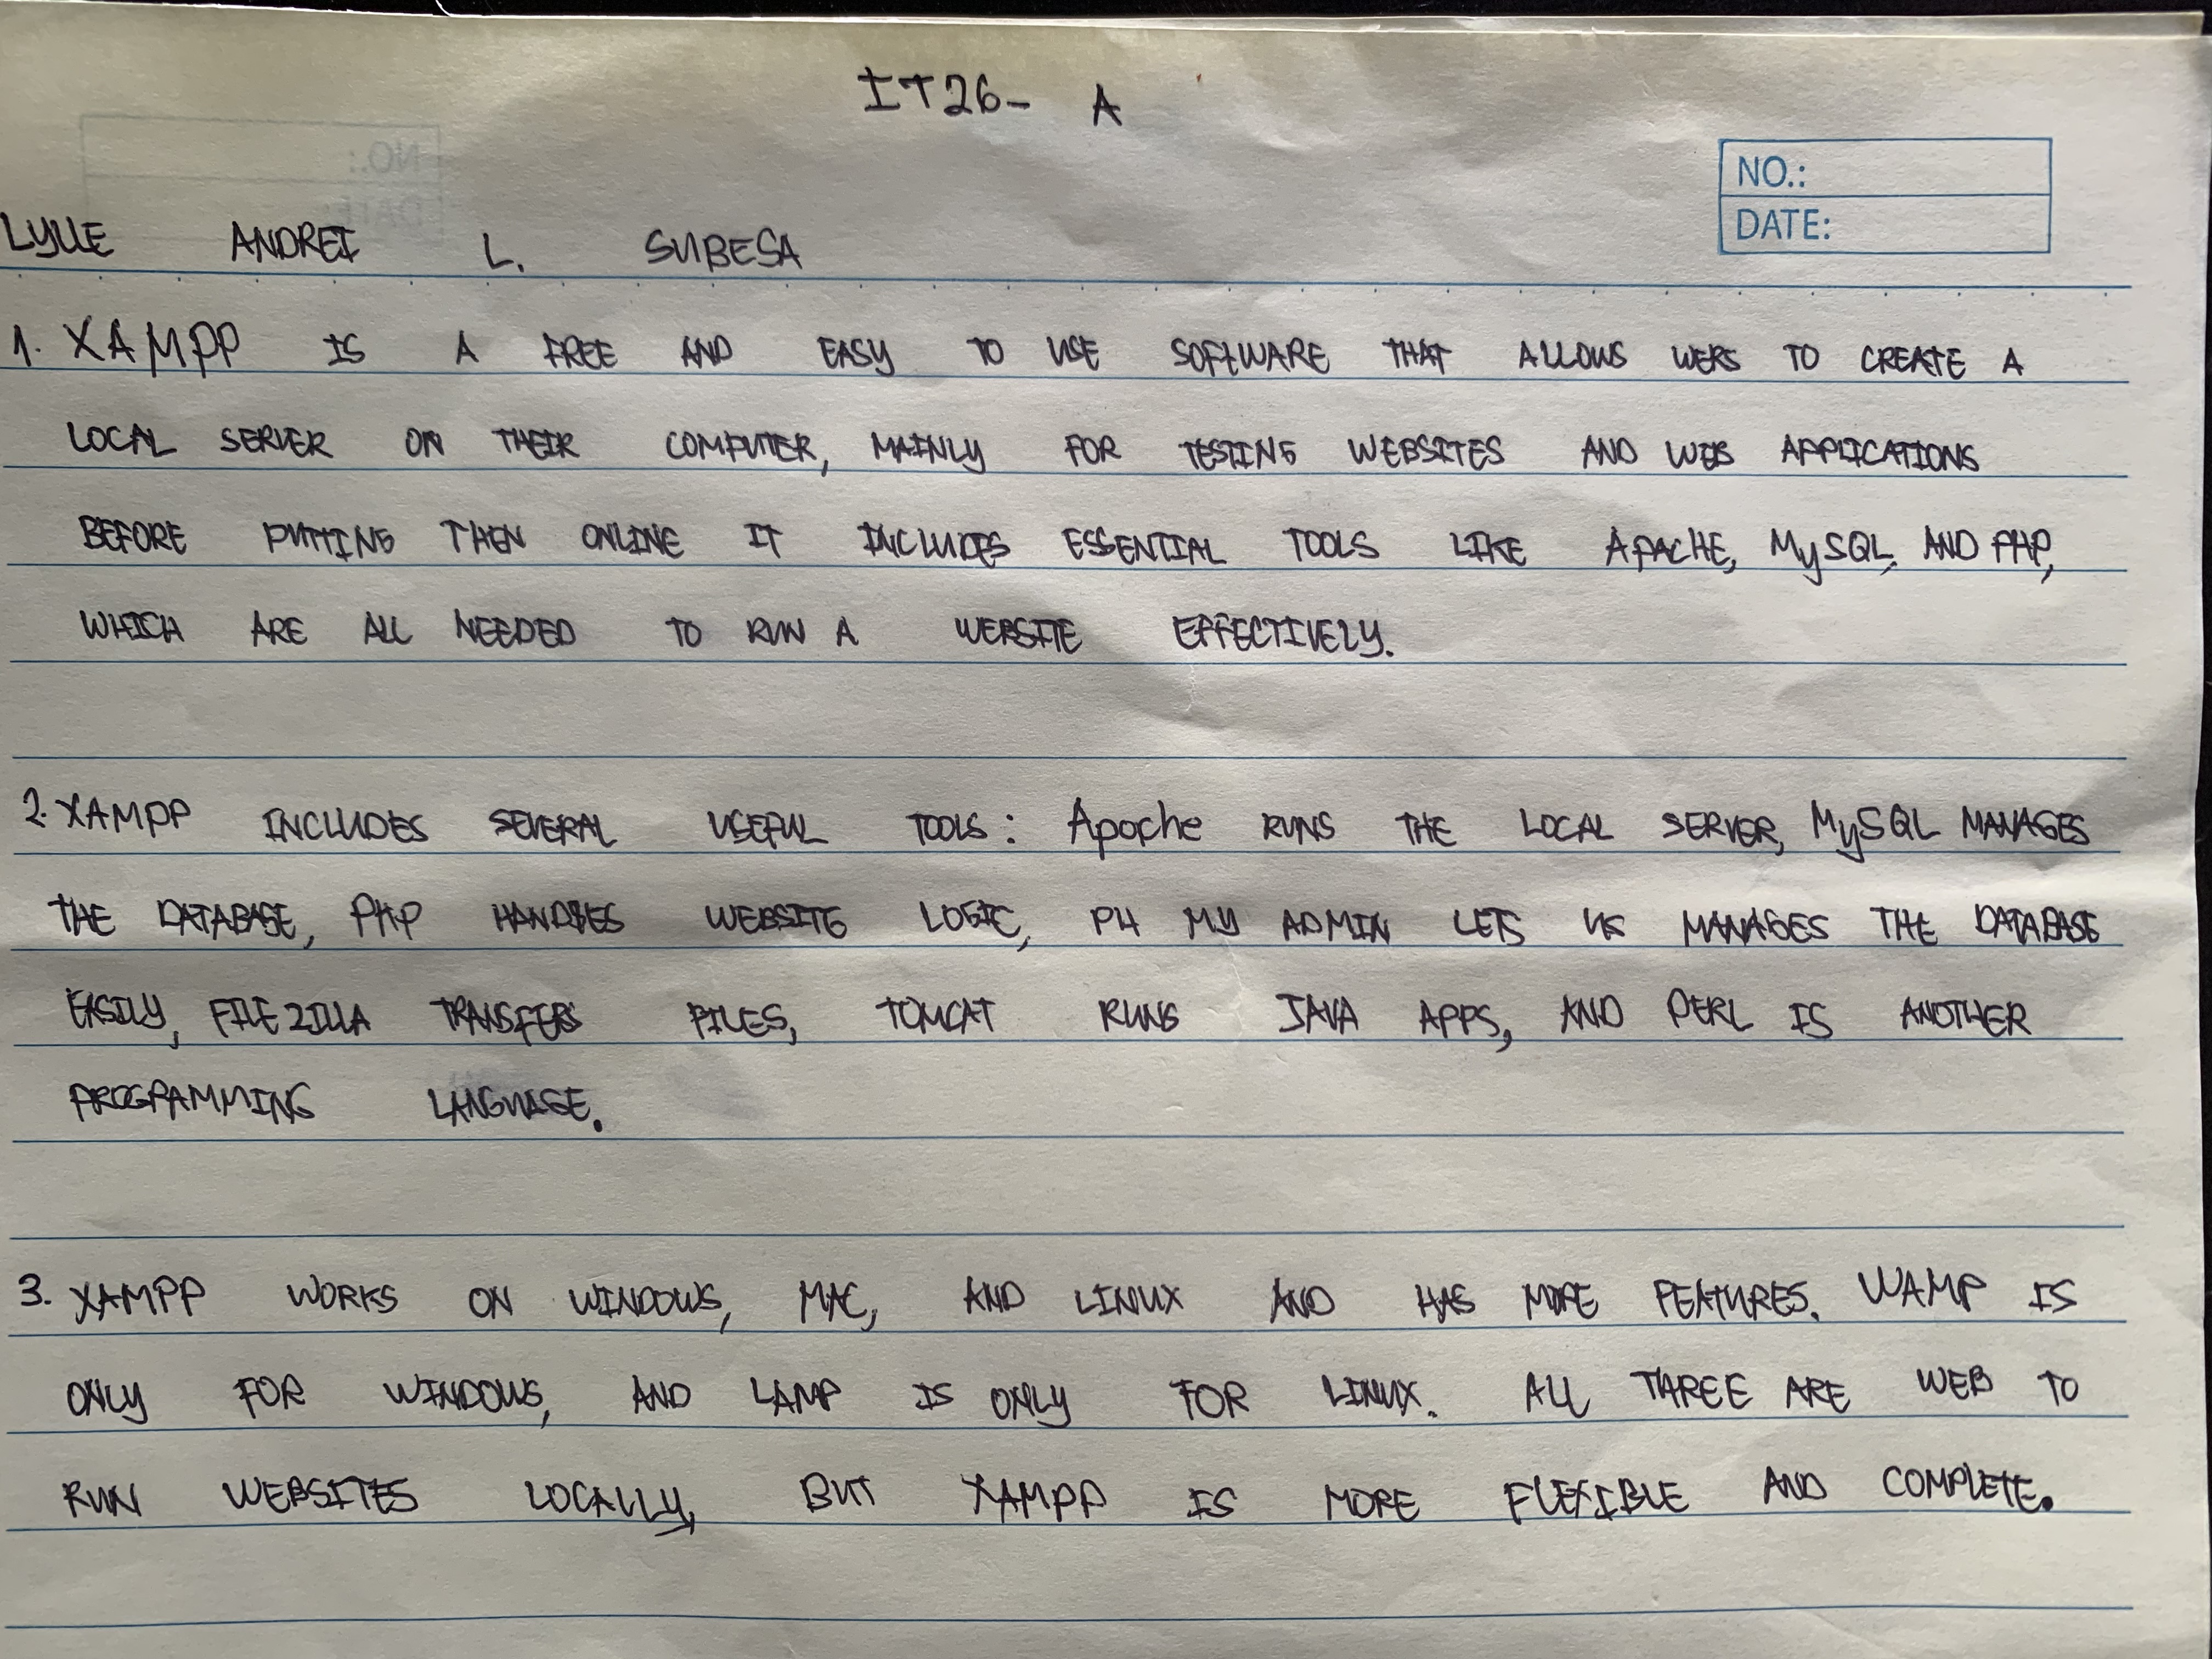 IT26-A
NO.:
DATE:
LYLLE ANDREI L. SUBESA
1. XAMPP IS A FREE AND EASY TO USE SOFTWARE THAT ALLOWS USERS TO CREATE A
LOCAL SERVER ON THEIR COMPUTER, MAINLY FOR TESTING WEBSITES AND WEB APPLICATIONS
BEFORE PUTTING THEN ONLINE IT INCLUDES ESSENTIAL TOOLS LIKE APACHE, MySQL, AND PHP,
WHICH ARE ALL NEEDED TO RUN A WEBSITE EFFECTIVELY.
2. XAMPP INCLUDES SEVERAL USEFUL TOOLS: Apache RUNS THE LOCAL SERVER, MySQL MANAGES
THE DATABASE, PHP HANDLES WEBSITE LOGIC, PH MY ADMIN LETS US MANAGES THE DATABASE
EASILY, FILEZILLA TRANSFERS FILES, TOMCAT RUNS JAVA APPS, AND PERL IS ANOTHER
PROGRAMMING LANGUAGE.
3. XAMPP WORKS ON WINDOWS, MAC, AND LINUX AND HAS MORE FEATURES. WAMP IS
ONLY FOR WINDOWS, AND LAMP IS ONLY FOR LINUX. ALL THREE ARE WEB TO
RUN WEBSITES LOCALLY, BUT XAMPP IS MORE FLEXIBLE AND COMPLETE.